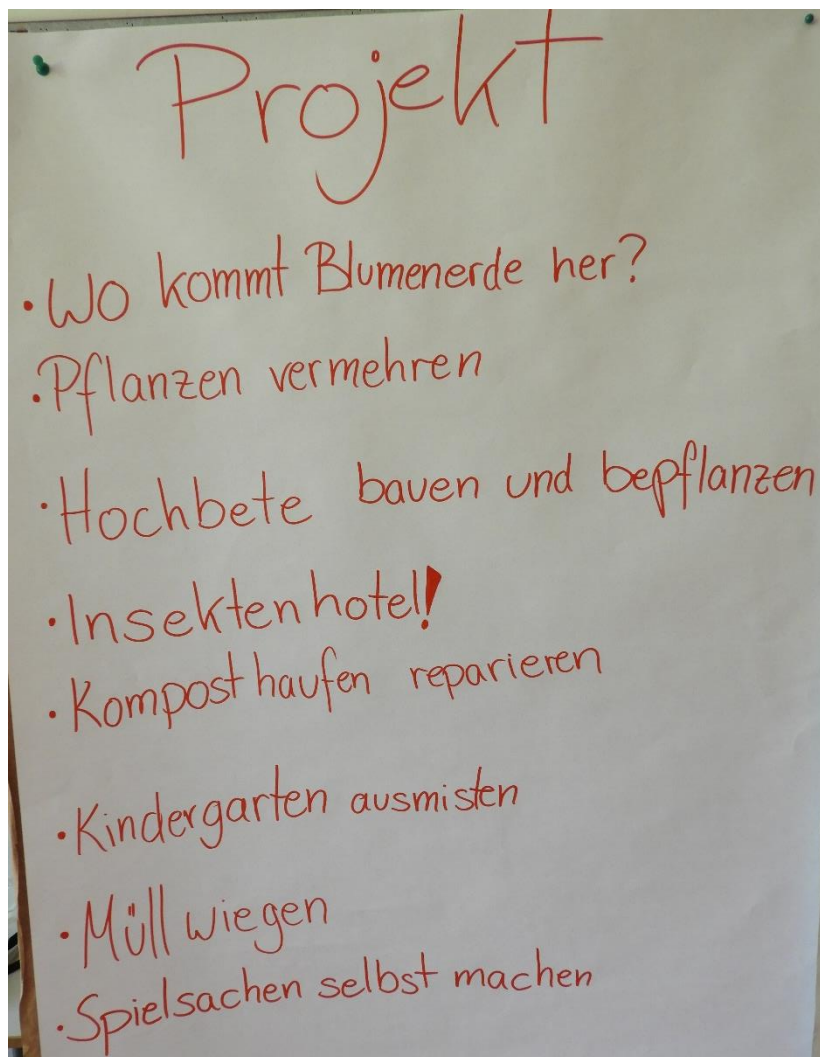 Projekt
· Wo kommt Blumenerde her?
· Pflanzen vermehren
· Hochbete bauen und bepflanzen
· Insektenhotel!
· Komposthaufen reparieren
· Kindergarten ausmisten
· Müll wiegen
· Spielsachen selbst machen